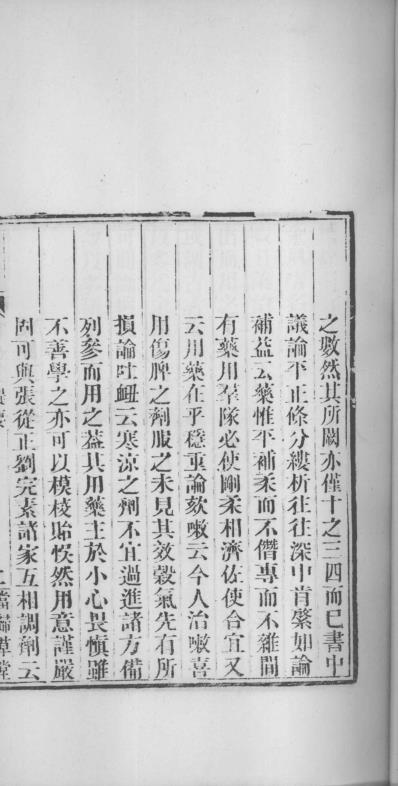 之數然其所闕亦僅十之三四而已書中
議論平正條分縷析往往深中肯綮如論
補益云藥惟平補柔而不僭專而不雜間
有藥用羣隊必使剛柔相濟佐使合宜又
云用藥在乎穩重論欬嗽云今人治嗽喜
用傷脾之劑服之未見其效穀氣先有所
損論吐衄云寒涼之劑不宜過進諸方備
列參而用之蓋其用藥主於小心畏慎雖
不善學之亦可以模棱貽悞然用意謹嚴
固可與張從正劉完素諸家互相調劑云